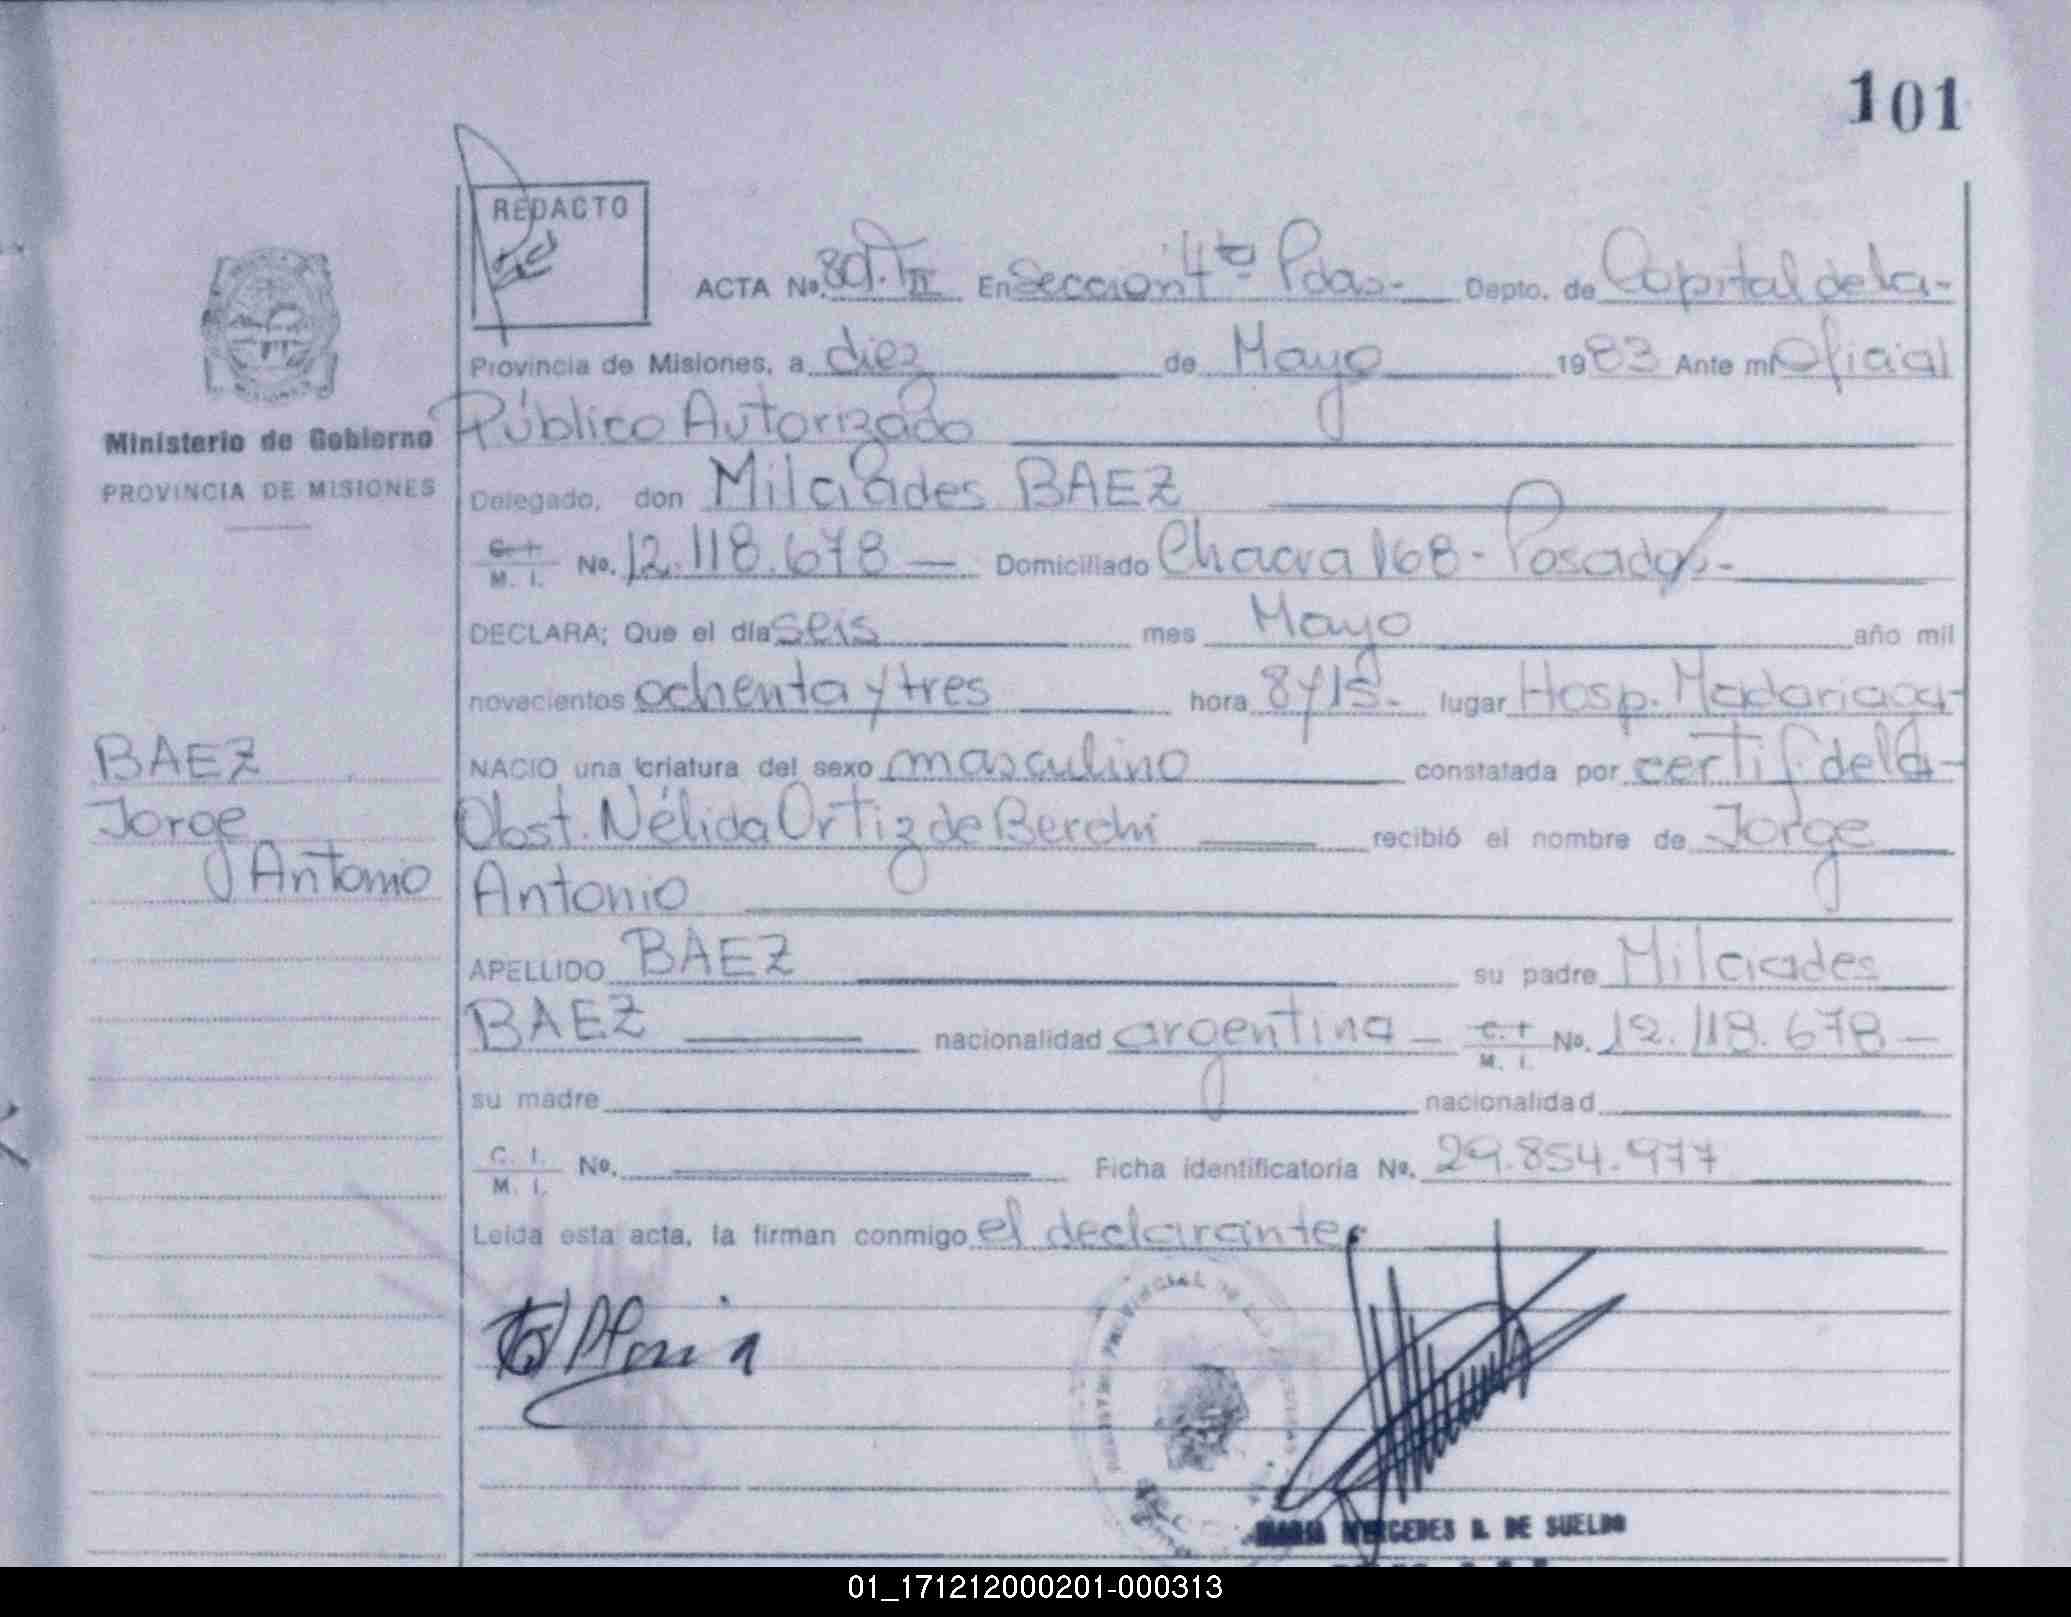 101
REDACTO
ACTA No. 801. T III En Sección 4ta Pdas.- Depto. de Capital de la-
Provincia de Misiones, a diez de Mayo 1983 Ante mí Oficial
Público Autorizado
Ministerio de Gobierno
PROVINCIA DE MISIONES
Delegado, don Milciades BAEZ
C. I. M. I. No. 12.118.678 — Domiciliado Chacra 168 - Posadas.-
DECLARA; Que el día seis mes Mayo año mil
novecientos ochenta y tres hora 8 y 15.- lugar Hosp. Madariaga-
BAEZ
Jorge
Antonio
NACIO una criatura del sexo masculino constatada por certif. de la-
Obst. Nélida Ortiz de Berchi recibió el nombre de Jorge
Antonio
APELLIDO BAEZ su padre Milciades
BAEZ nacionalidad argentina — C. I. M. I. No. 12.118.678 —
su madre nacionalidad
C. I. M. I. No. Ficha identificatoria No. 29.854.977
Leída esta acta, la firman conmigo el declarante.
MARIA MERCEDES B. DE SUELDO
01_171212000201-000313